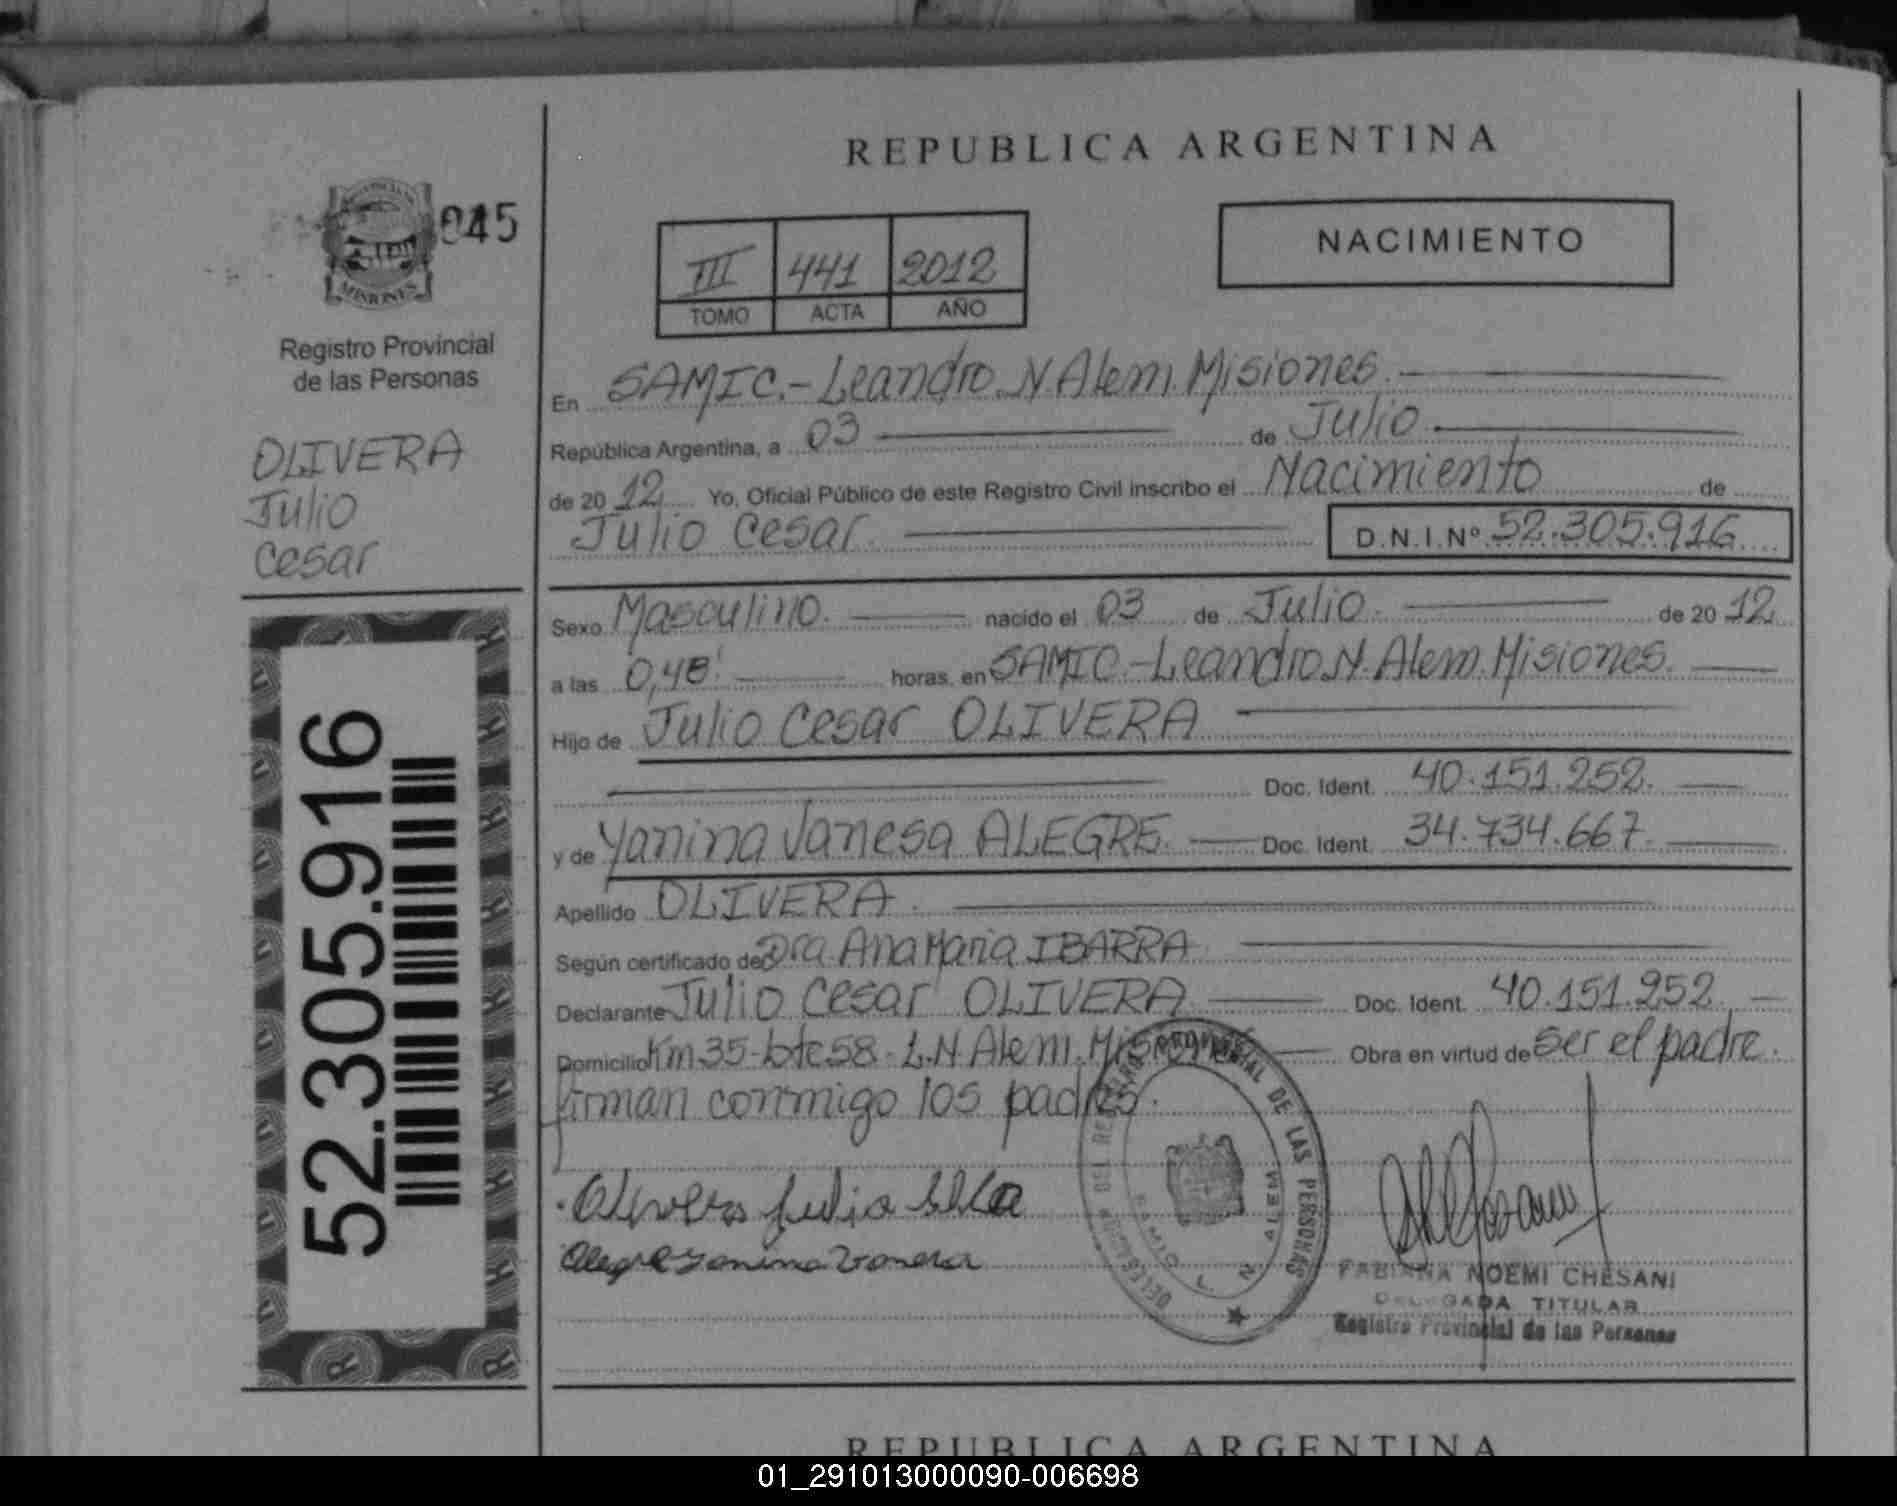 REPUBLICA ARGENTINA
045
MISIONES
Registro Provincial
de las Personas
OLIVERA
Julio
Cesar
52.305.916
III 441 2012
TOMO ACTA AÑO
NACIMIENTO
En SAMIC.-Leandro N. Alem. Misiones.
República Argentina, a 03 de Julio.
de 20 12 Yo, Oficial Público de este Registro Civil inscribo el Nacimiento de
Julio Cesar. D.N.I.Nº 52.305.916
Sexo Masculino. nacido el 03 de Julio. de 20 12
a las 0,48' horas, en SAMIC.-Leandro N. Alem. Misiones.
Hijo de Julio Cesar OLIVERA
Doc. Ident. 40.151.252.
y de Yanina Vanesa ALEGRE. Doc. Ident. 34.734.667.
Apellido OLIVERA.
Según certificado de Dra. Ana Maria IBARRA
Declarante Julio Cesar OLIVERA. Doc. Ident. 40.151.252.
Domicilio Km.35-lote.58-L.N.Alem.Misiones Obra en virtud de ser el padre.
firman conmigo los padres.
Olivera Julio
Alegre Yanina Vanesa
REGISTRO PROVINCIAL DE LAS PERSONAS
SAMIC L. N. ALEM
FABIANA NOEMI CHESANI
DELEGADA TITULAR
Registro Provincial de las Personas
REPUBLICA ARGENTINA
01_291013000090-006698